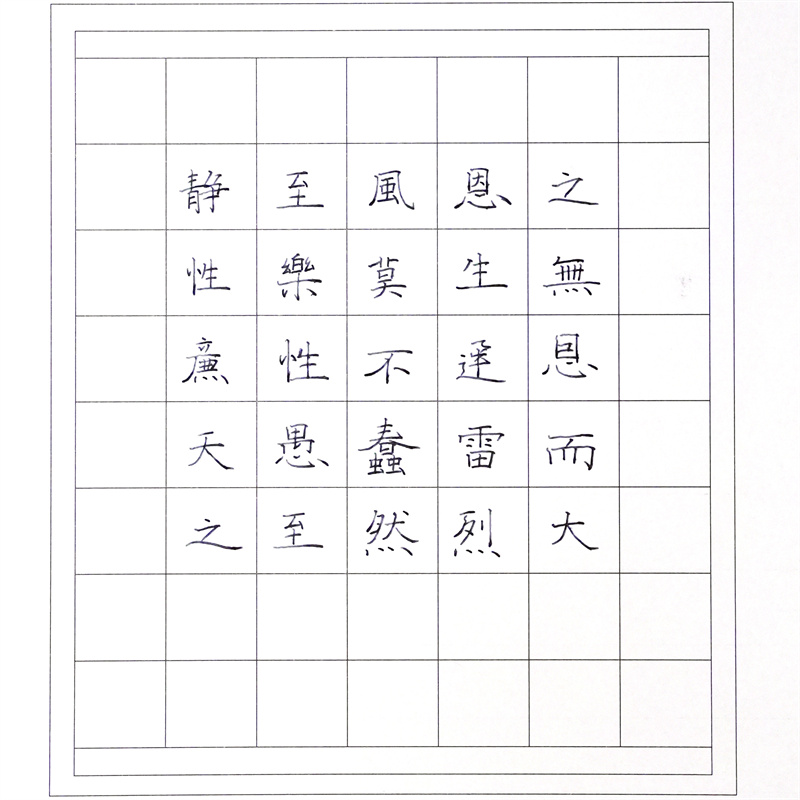 之無恩而大
恩生迅雷烈
風莫不蠢然
至樂性愚至
静性廉天之